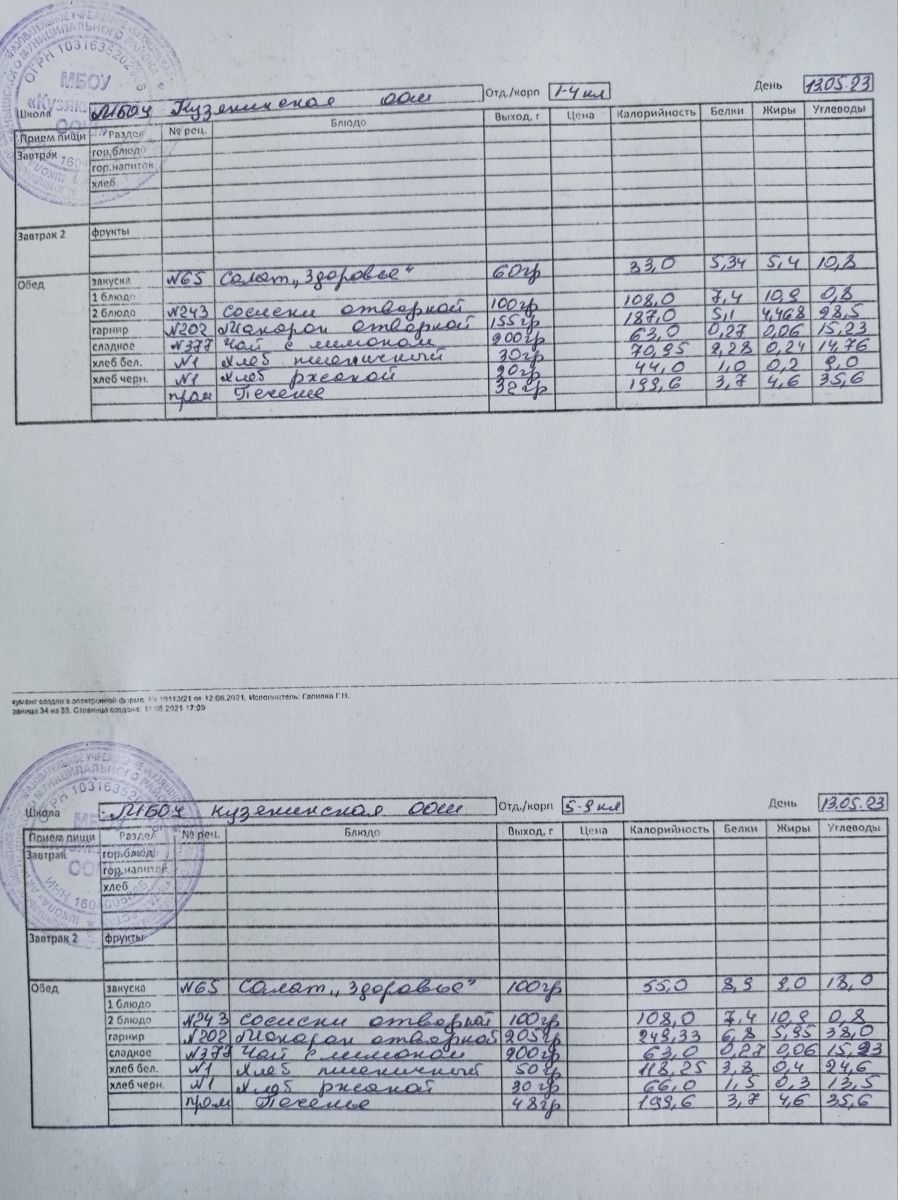 МБОУ
Школа МБОУ Кузякинская оош Отд./корп 1-4 кл День 13.05.23
Прием пищи Раздел № рец. Блюдо Выход, г Цена Калорийность Белки Жиры Углеводы
Завтрак гор.блюдо
гор.напиток
хлеб
Завтрак 2 фрукты
Обед закуска №65 Салат „Здоровье“ 60гр 33,0 5,34 5,4 10,8
1 блюдо
2 блюдо №243 Сосиски отворной 100гр 108,0 7,4 10,9 0,8
гарнир №202 Макарон отворной 155гр 187,0 5,11 4,468 28,5
сладкое №377 Чай с лимоном 200гр 63,0 0,27 0,06 15,23
хлеб бел. №1 Хлеб пшеничный 30гр 70,95 2,28 0,24 14,76
хлеб черн. №1 Хлеб ржаной 20гр 44,0 1,0 0,2 9,0
пром Печенье 32гр 199,6 3,7 4,6 35,6
кумент создан в электронной форме. № 10113/21 от 12.08.2021. Исполнитель:
раница 34 из 35. Страница создана: 11.08.2021 17:09
Школа МБОУ Кузякинская оош Отд./корп 5-9 кл День 13.05.23
Прием пищи Раздел № рец. Блюдо Выход, г Цена Калорийность Белки Жиры Углеводы
Завтрак гор.блюдо
гор.напиток
хлеб
Завтрак 2 фрукты
Обед закуска №65 Салат „Здоровье“ 100гр 55,0 8,9 9,0 18,0
1 блюдо
2 блюдо №243 Сосиски отворной 100гр 108,0 7,4 10,9 0,8
гарнир №202 Макарон отворной 205гр 249,33 6,8 5,95 38,0
сладкое №377 Чай с лимоном 200гр 63,0 0,27 0,06 15,23
хлеб бел. №1 Хлеб пшеничный 50гр 118,25 3,8 0,4 24,6
хлеб черн. №1 Хлеб ржаной 30гр 66,0 1,5 0,3 13,5
пром Печенье 48гр 199,6 3,7 4,6 35,6